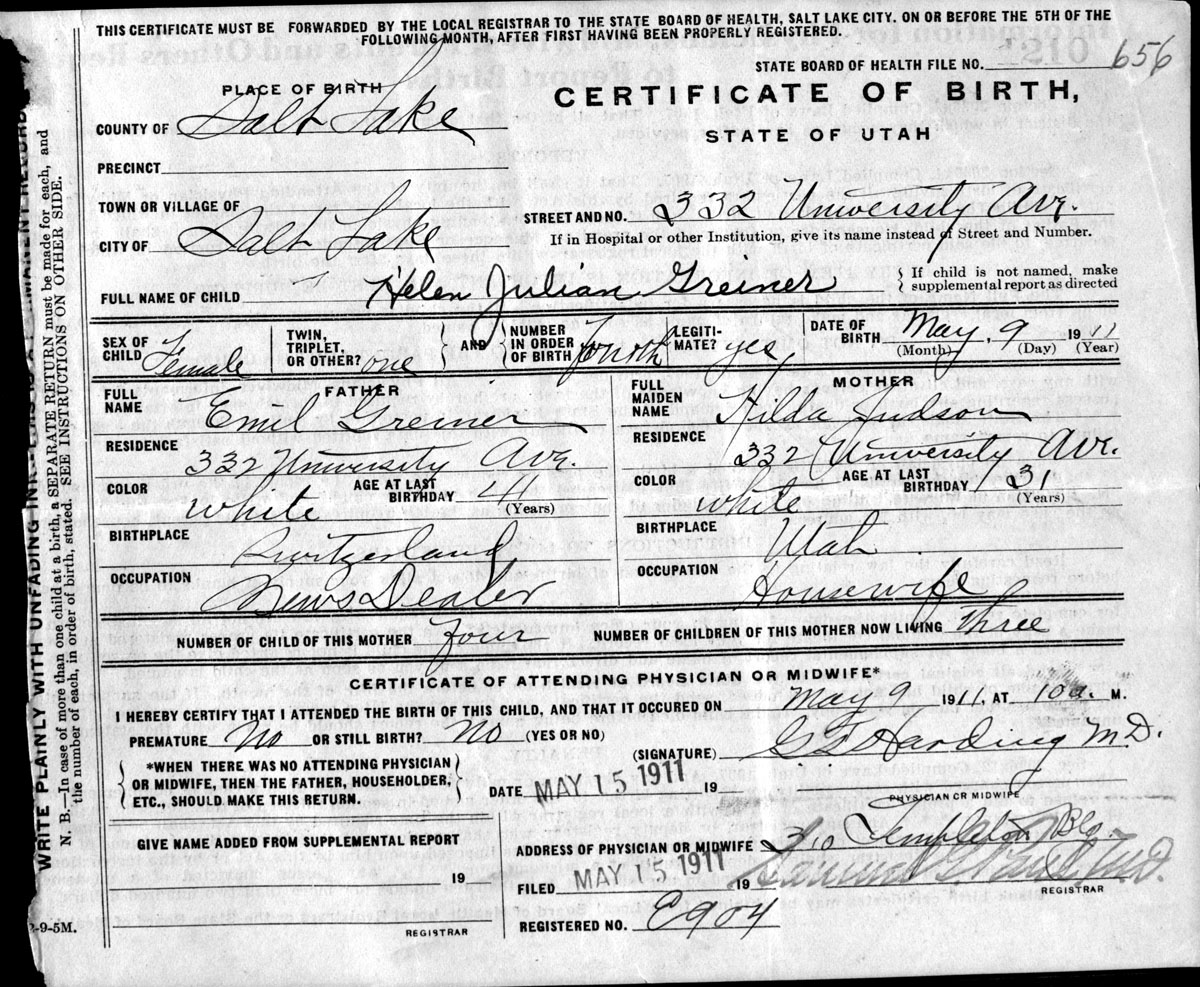 THIS CERTIFICATE MUST BE FORWARDED BY THE LOCAL REGISTRAR TO THE STATE BOARD OF HEALTH, SALT LAKE CITY. ON OR BEFORE THE 5TH OF THE
FOLLOWING MONTH, AFTER FIRST HAVING BEEN PROPERLY REGISTERED.
STATE BOARD OF HEALTH FILE NO. 656
PLACE OF BIRTH
CERTIFICATE OF BIRTH,
COUNTY OF Salt Lake
STATE OF UTAH
PRECINCT
TOWN OR VILLAGE OF
STREET AND NO. 332 University Ave.
CITY OF Salt Lake
If in Hospital or other Institution, give its name instead of Street and Number.
FULL NAME OF CHILD Helen Julian Greiner
{ If child is not named, make
supplemental report as directed
SEX OF CHILD Female
TWIN, TRIPLET, OR OTHER? one
} AND {
NUMBER IN ORDER OF BIRTH fourth
LEGITIMATE? yes
DATE OF BIRTH May, 9 1911
(Month) (Day) (Year)
FATHER
FULL NAME Emil Greiner
RESIDENCE 332 University Ave.
COLOR White
AGE AT LAST BIRTHDAY 41
(Years)
BIRTHPLACE Switzerland
OCCUPATION News Dealer
MOTHER
FULL MAIDEN NAME Hilda Judson
RESIDENCE 332 University Ave.
COLOR White
AGE AT LAST BIRTHDAY 31
(Years)
BIRTHPLACE Utah
OCCUPATION Housewife
NUMBER OF CHILD OF THIS MOTHER Four
NUMBER OF CHILDREN OF THIS MOTHER NOW LIVING three
CERTIFICATE OF ATTENDING PHYSICIAN OR MIDWIFE*
I HEREBY CERTIFY THAT I ATTENDED THE BIRTH OF THIS CHILD, AND THAT IT OCCURED ON May 9 1911, AT 10 a. M.
PREMATURE No OR STILL BIRTH? No (YES OR NO)
(SIGNATURE) Harding M.D.
PHYSICIAN OR MIDWIFE
{ *WHEN THERE WAS NO ATTENDING PHYSICIAN
OR MIDWIFE, THEN THE FATHER, HOUSEHOLDER,
ETC., SHOULD MAKE THIS RETURN. }
DATE MAY 15 1911 19
GIVE NAME ADDED FROM SUPPLEMENTAL REPORT
19
REGISTRAR
ADDRESS OF PHYSICIAN OR MIDWIFE 310 Templeton Blg.
FILED MAY 15 1911 19
REGISTRAR
REGISTERED NO. E904
WRITE PLAINLY WITH UNFADING INK
N. B.—In case of more than one child at a birth, a SEPARATE RETURN must be made for each, and
the number of each, in order of birth, stated. SEE INSTRUCTIONS ON OTHER SIDE.
-9-5M.